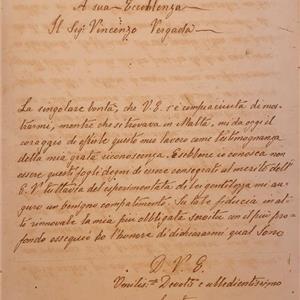 A sua Eccellenza
Il Sig.r Vincenzo Vergada
La singolare bontà, che V. E. s'è compiaciuta di mos-
trarmi, mentre che si trovava in Malta, mi dà oggi il
coraggio di questo mio lavoro come testimognanza
della mia grata riconoscenza. Ebbene io conosca non
essere questi fogli degni di essere consegrati al merito dell'
E. V. tuttavia dal esperimentata di lei gentilezza mi au-
guro un benigno compatimento. Su tale fiducia in at-
to rinnovate la mia più obbligata servitù con il più pro-
fondo ossequio ò l'honore di dichiararmi qual sono
D. V. E.
Umilis.mo Devoto e ubbedientissimo